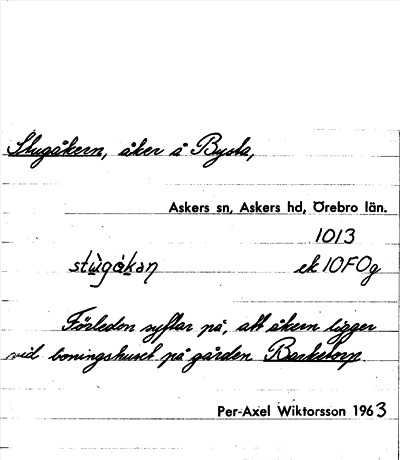 Stugåkern, åker å Bysta,
Askers sn, Askers hd, Örebro län.
1013
stùgákan ek 10F0g
Förleden syftar på, att åkern ligger
vid boningshuset på gården Barkstorp.
Per-Axel Wiktorsson 1963